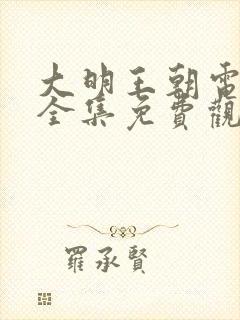 大明王朝電
全集免費觀
羅承賢